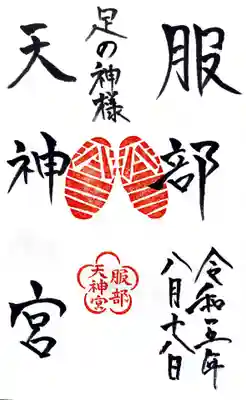 足の神様
服部
天神宮
服部
天神宮
令和五年
八月十八日